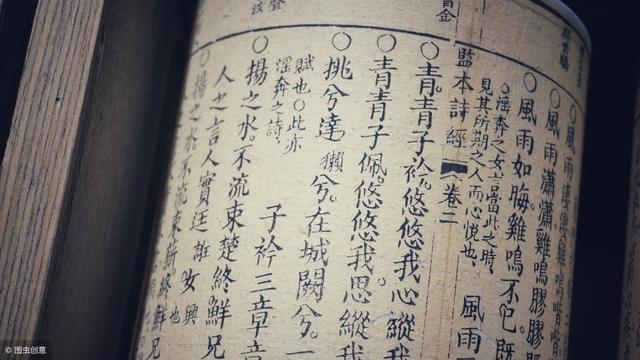 ○風雨
○風雨瀟瀟雞鳴膠膠
○風雨如晦雞鳴不已既
○淫奔之女言當此之時、
見其所期之人而心悅也、
風雨
監本詩經 卷二
○青青子衿。悠悠我心縱
○青青子佩。悠悠我思。縱我
○挑兮達獺兮。在城闕兮。一
賦也○此亦
淫奔之詩、
子衿三章章
○揚之水。不流束楚終鮮兄
人之言人實廷誑女興也
○揚之水。不流束薪。終鮮兄
© 图虫创意